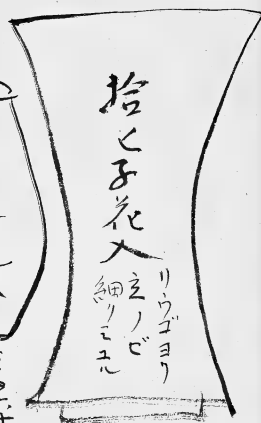 拾ヒ子花入
リウゴヨリ
立ノビ
細クミユル